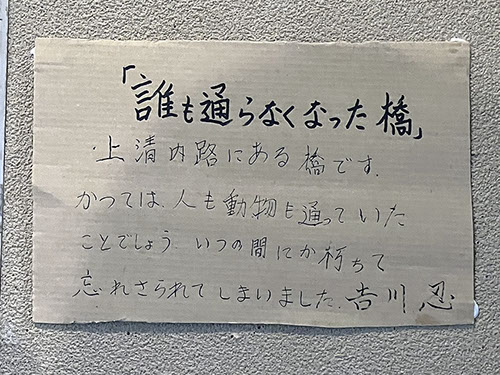 「誰も通らなくなった橋」
・上清内路にある橋です.
かつては、人も動物も通っていた
ことでしょう いつの間にか朽ちて
忘れさられてしまいました. 吉川 忍